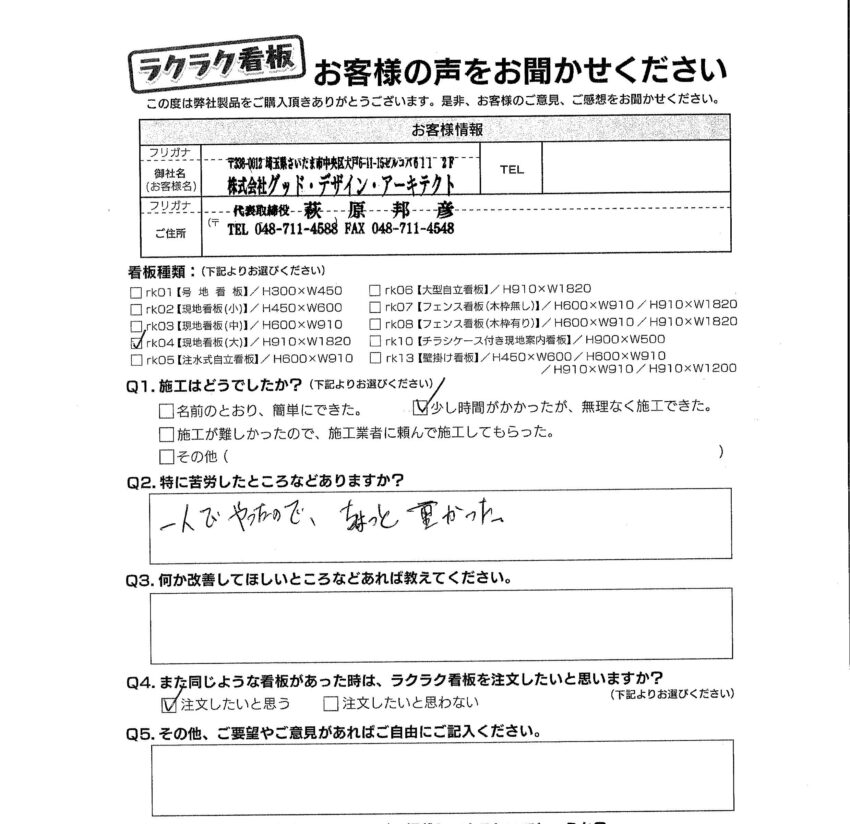 ラクラク看板
お客様の声をお聞かせください
この度は弊社製品をご購入頂きありがとうございます。是非、お客様のご意見、ご感想をお聞かせください。
お客様情報
フリガナ
御社名
(お客様名)
〒338-0012 埼玉県さいたま市中央区大戸6-11-15ビルコパ611 2F
株式会社グッド・デザイン・アーキテクト
TEL
フリガナ
代表取締役 萩原邦彦
ご住所
(〒 )
TEL 048-711-4588 FAX 048-711-4548
看板種類:(下記よりお選びください)
□rk01【号地看板】/H300×W450
□rk02【現地看板(小)】/H450×W600
□rk03【現地看板(中)】/H600×W910
☑rk04【現地看板(大)】/H910×W1820
□rk05【注水式自立看板】/H600×W910
□rk06【大型自立看板】/H910×W1820
□rk07【フェンス看板(木枠無し)】/H600×W910/H910×W1820
□rk08【フェンス看板(木枠有り)】/H600×W910/H910×W1820
□rk10【チラシケース付き現地案内看板】/H900×W500
□rk13【壁掛け看板】/H450×W600/H600×W910
/H910×W910/H910×W1200
Q1.施工はどうでしたか?(下記よりお選びください)
□名前のとおり、簡単にできた。 ☑少し時間がかかったが、無理なく施工できた。
□施工が難しかったので、施工業者に頼んで施工してもらった。
□その他( )
Q2.特に苦労したところなどありますか?
一人でやったので、ちょっと重かった。
Q3.何か改善してほしいところなどあれば教えてください。
Q4.また同じような看板があった時は、ラクラク看板を注文したいと思いますか?
(下記よりお選びください)
☑注文したいと思う □注文したいと思わない
Q5.その他、ご要望やご意見があればご自由にご記入ください。